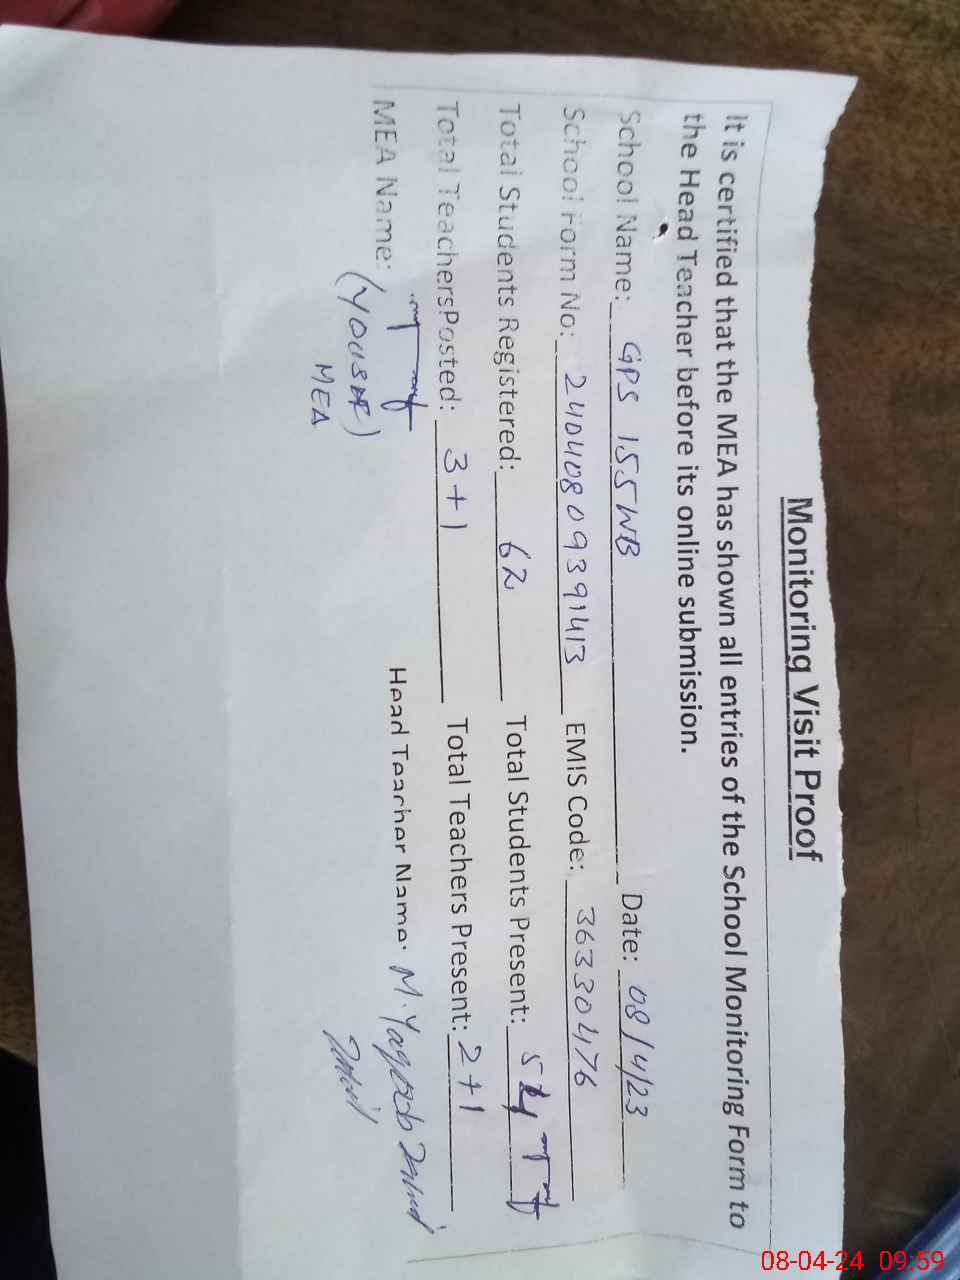 Monitoring Visit Proof
It is certified that the MEA has shown all entries of the School Monitoring Form to
the Head Teacher before its online submission.
School Name: GPS 155WB Date: 08/4/23
School Form No: 24040809391413 EMIS Code: 36330476
Total Students Registered: 62 Total Students Present: 54
Total TeachersPosted: 3+1 Total Teachers Present: 2+1
MEA Name: Head Teacher Name: M. Yaqoob
(YOUSAF)
MEA
08-04-24 09:59